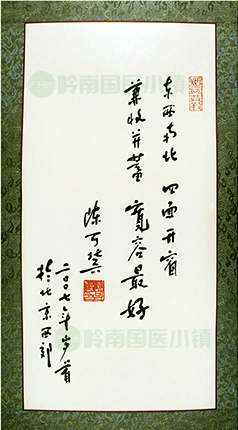 东西南北 四面开窗
兼收并蓄 宽容最好
陈可冀
二00七年岁首
於北京西郊
岭南国医小镇
岭南国医小镇